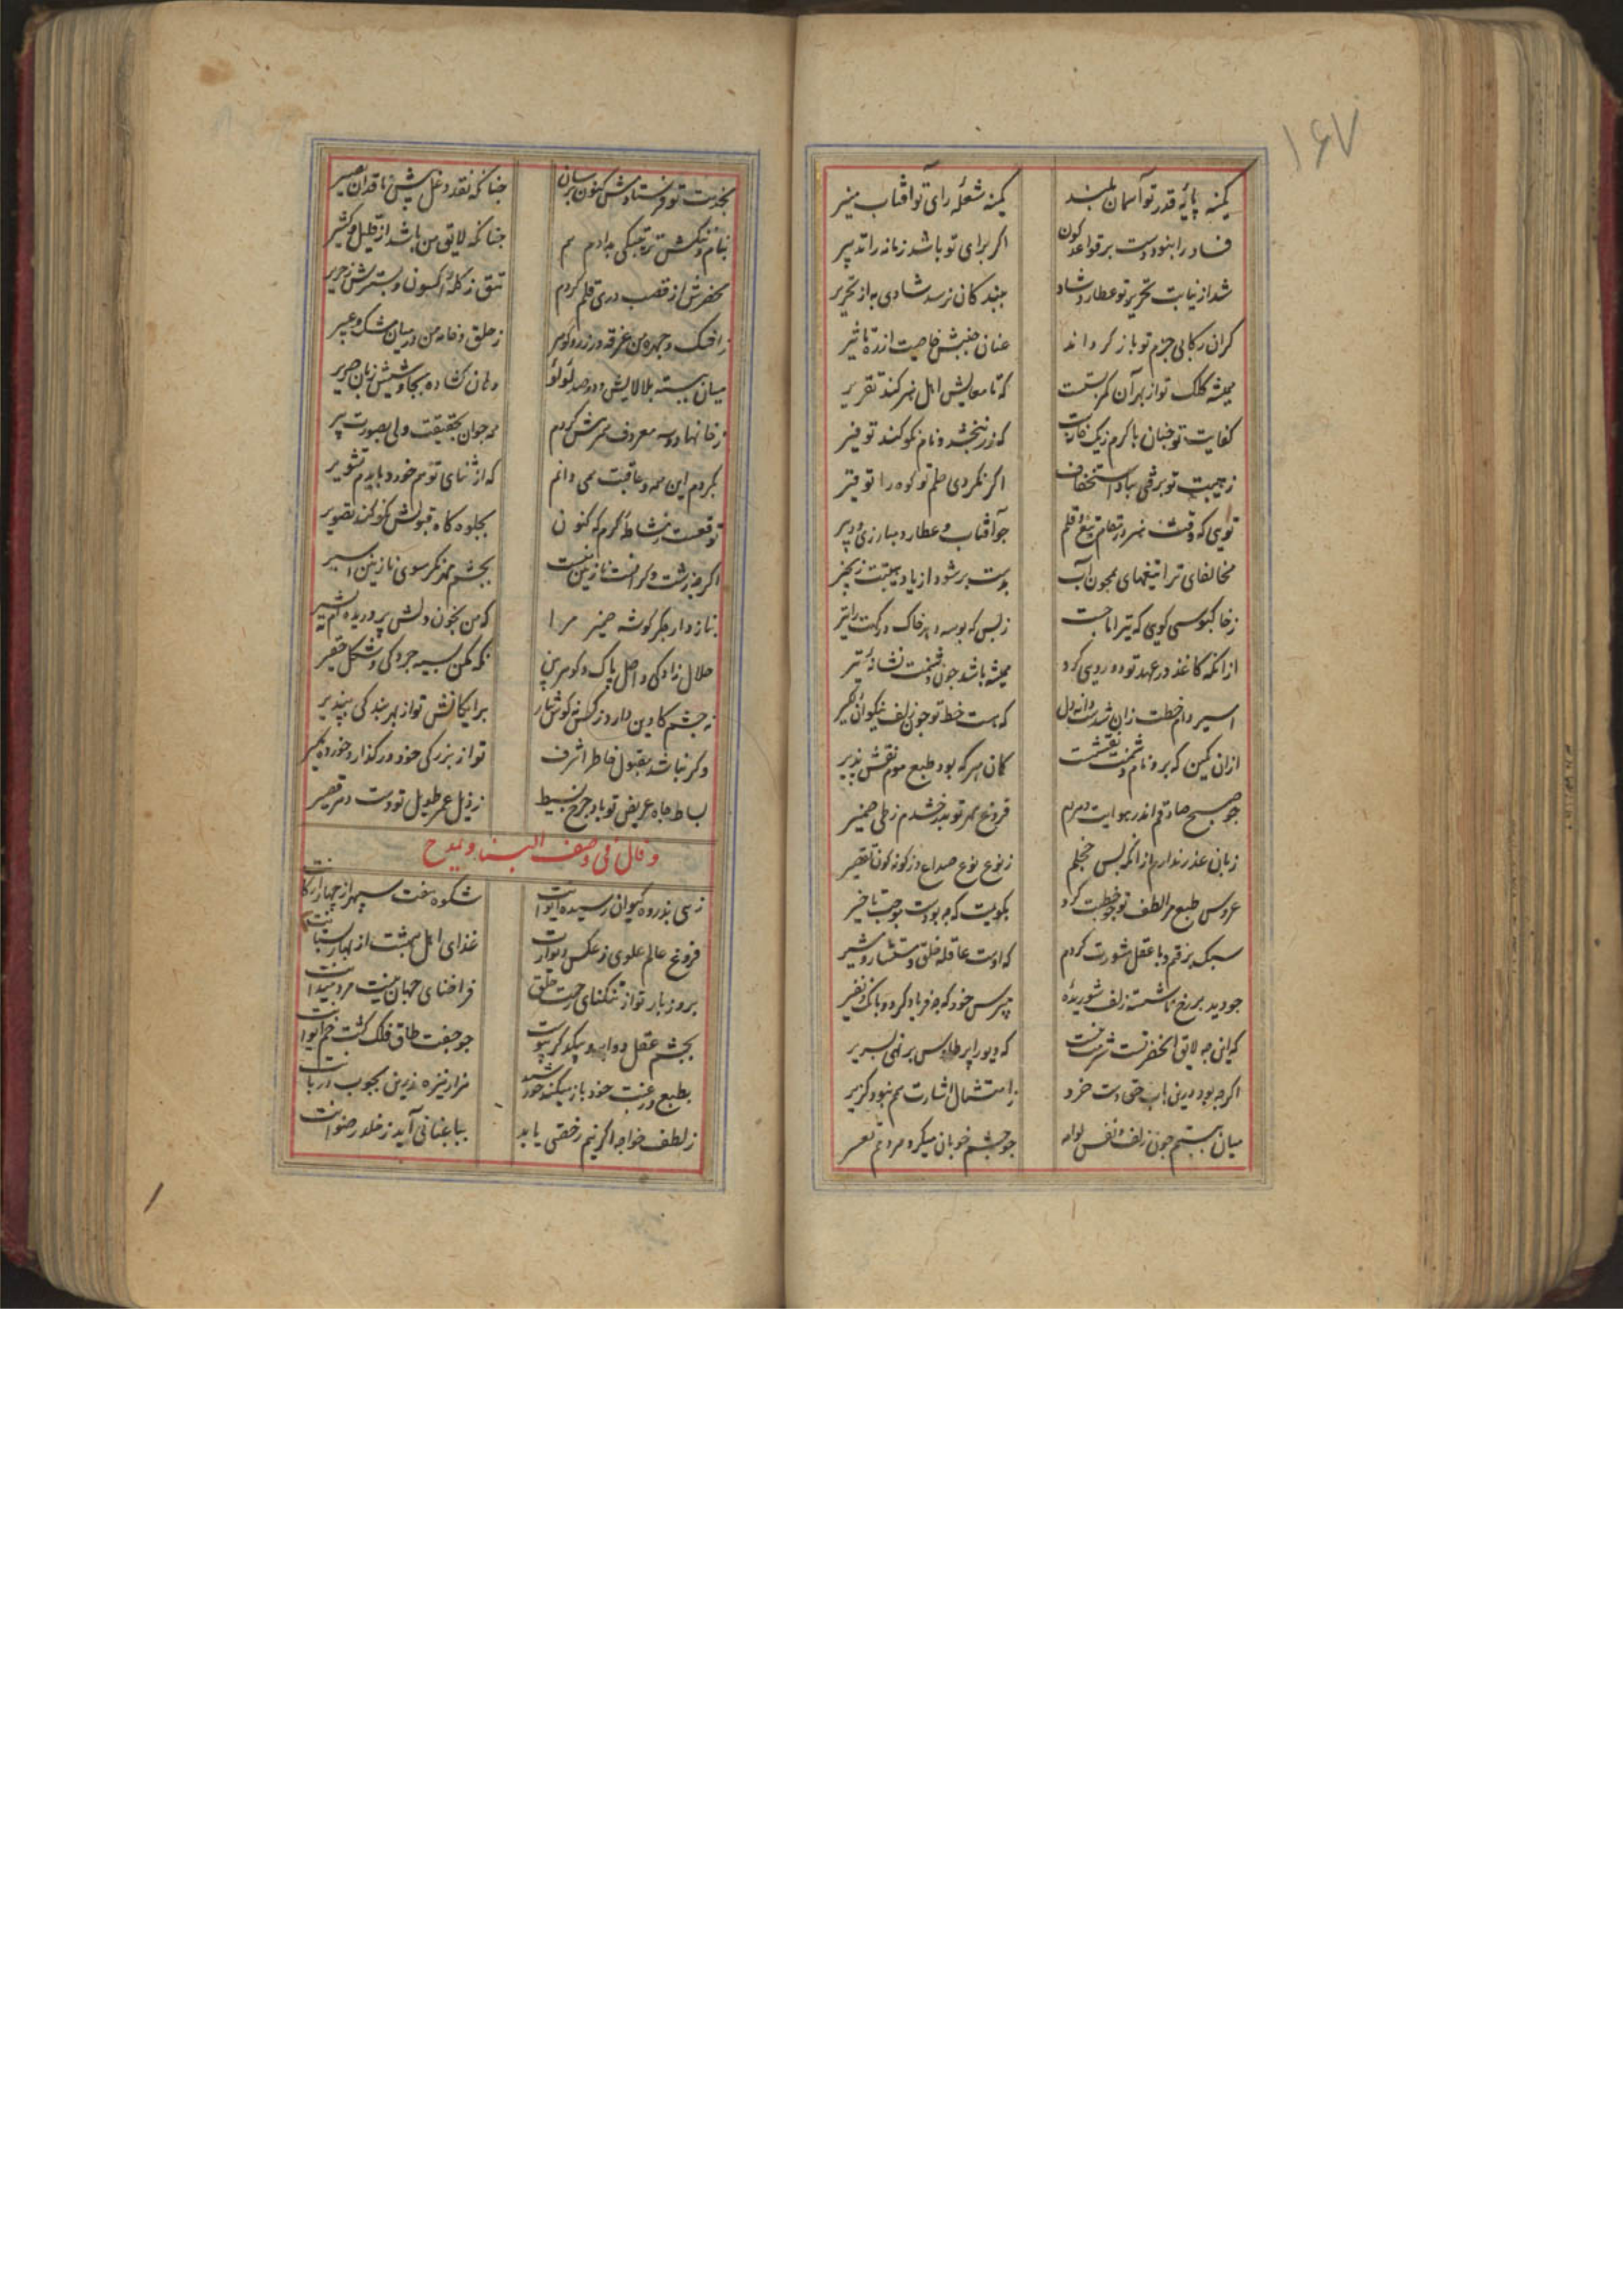 ۱۶۷
کمینه پایهٔ قدر تو آسمان بلند کمینه شعلهٔ رای تو آفتاب منیر
فساد را نبود دست بر قواعد کون اگر برای تو باشد زمانه را تدبیر
شد از نیابت تحریر تو عطارد شاد ببندکان نرسد شادی به از تحریر
کران رکابی حزم تو باز کرداند عنان جنبش خاصیت از ره تاثیر
همیشه کلک تو از بهر آن کمر بستست که تا معایش اهل هنر کند تقریر
کفایت تو چنان با کرم که زر ببخشد و نام نکو کند توفیر
زهیبت تو برفتی بباد استخفاف اکر نکردی حلم تو کوه را توقیر
تویی که وقت هنر در مقام تیغ و قلم جو آفتاب و عطارد مبارزی و دبیر
مخالفای ترا تیغهای همجون آب بدست بر شود از باد هیبتت زنجیر
زبس که بوسه دهد خاک درکهت را تیر
از انکه کاغذ در عهد تو دورویی کرد همیشه باشد جون نشانهٔ تیر
اسیر دام خطت زان شدست دانه دل که هست خط تو جون زلف نیکوان
ازان نکین که برو نام نقشست کان مهر که بود طبع موم نقش پذیر
جو صبح صادقم اندر هوایت دهردم فروغ مهر تو بدرخشدم ز طی ضمیر
زبان عذر ندارم از انکه بس خجلم ز نوع نوع صداع و ز کونه کون تقصیر
عروس طبع مرا لطف تو جو خطبت کرد بکویمت که جه بودست موجب تاخیر
سبک برفتم و با عقل مشورت کردم که اوست عاقلهٔ خلق و مستشار و مشیر
جو دید بر رخ ناشسته زلف شوریده مپرس خود که جه فریاد کرد و بانک نفیر
که اینجه لایق آنحضرتست شرمت نیست که دیو را پر طاوس برنهی بسریر
اکرجه بود درین باب حق بدست خرد ز امتثال اشارت هم نبود کزیر
میان ببستم جون زلف جو جشم خوبان میکرد
بخدمت تو فرستادمش کنون جنانکه نقد دغل پیش ناقدان بصیر
بنام و ننکش ترتیبکی بدادم هم جنانکه لایق من باشد از قلیل و کثیر
محضرش از قصب دری قلم کردم تتق ز کلهٔ اکسون و بسترش ز حریر
ز اشک و جهرهٔ من غرقه در زر و کوهر ز خلق و خامهٔ من در میان مشک و عبیر
میان ببسته بلالایش دو صد لؤلؤ دهان کشاده
بکردم این همه و عاقبت همی دانم که از ثنای تو هم خورد بایدم تشویر
توقعست کرم که کنون بجلوه کاه قبولش نکو کند تصویر
اکرجه زشت و کرانست نازنین منست بجشم مهر نکر سوی نازنین اسیر
بناز دار جکر کوشهٔ ضمیر مرا که من بخون دلش پروریده ام نه بشیر
حلال زادکی و اصل پاک و کوهر بین نکه مکن بسیه جردکی و شکل حقیر
نه جشم کابین دارد ز کس نه کوش نثار برایکانش تو از بهر بندکی بپذیر
وکر نباشد مقبول خاطر اشرف تو از بزرکی خود درکذار و خورده مکیر
بساط جاه عریض تو باد جرخ بسیط ز ذیل عمر طویل تو دست دهر قصیر
و قال فی وصف البنا و یمدح
زهی بذروهٔ کیوان رسیده ایوانت شکوه هفت سپهر از چهار ارکانت
فروغ عالم علوی ز عکس دیوارت غذای اهل بهشت از بهار بستانت
بروز بار تو از تنکنای زحمت خلق فراخنای جهان نیست مرد میدانت
بجشم عقل دو ابرو نیکو کر پیوست جو جفت طاق فلک کشت خم ایوانت
بطبع و رغبت خود باز میکند خورشید هزار نیزهٔ زرین بجوب دربانت
ز لطف خواجه اکر نیم رخصتی یابد بباغبانی آید ز خلد رضوانت